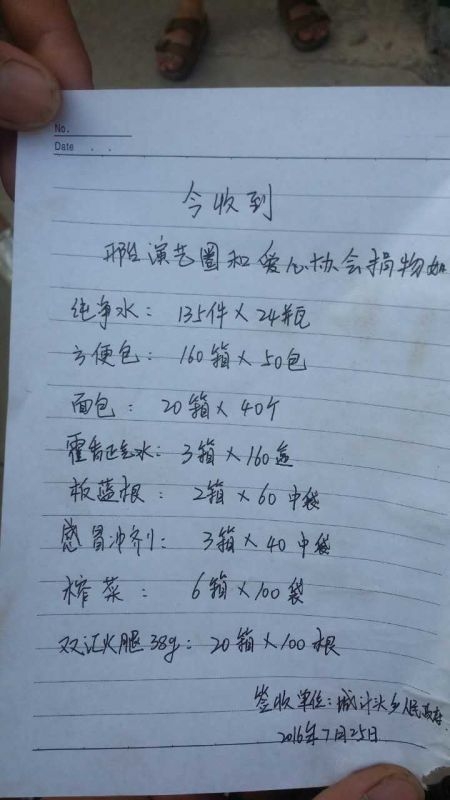 No.
Date . .
今收到
邢台演艺圈和爱心协会捐物如
纯净水： 135件×24瓶
方便包： 160箱×50包
面包： 20箱×40个
霍香正气水： 3箱×160盒
板蓝根： 2箱×60中袋
感冒冲剂： 3箱×40中袋
榨菜： 6箱×100袋
双汇火腿38g： 20箱×100根
签收单位：城计头乡人民政府
2016年7月25日